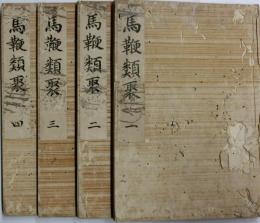 馬鞭類聚 一
馬鞭類聚 二
馬鞭類聚 三
馬鞭類聚 四